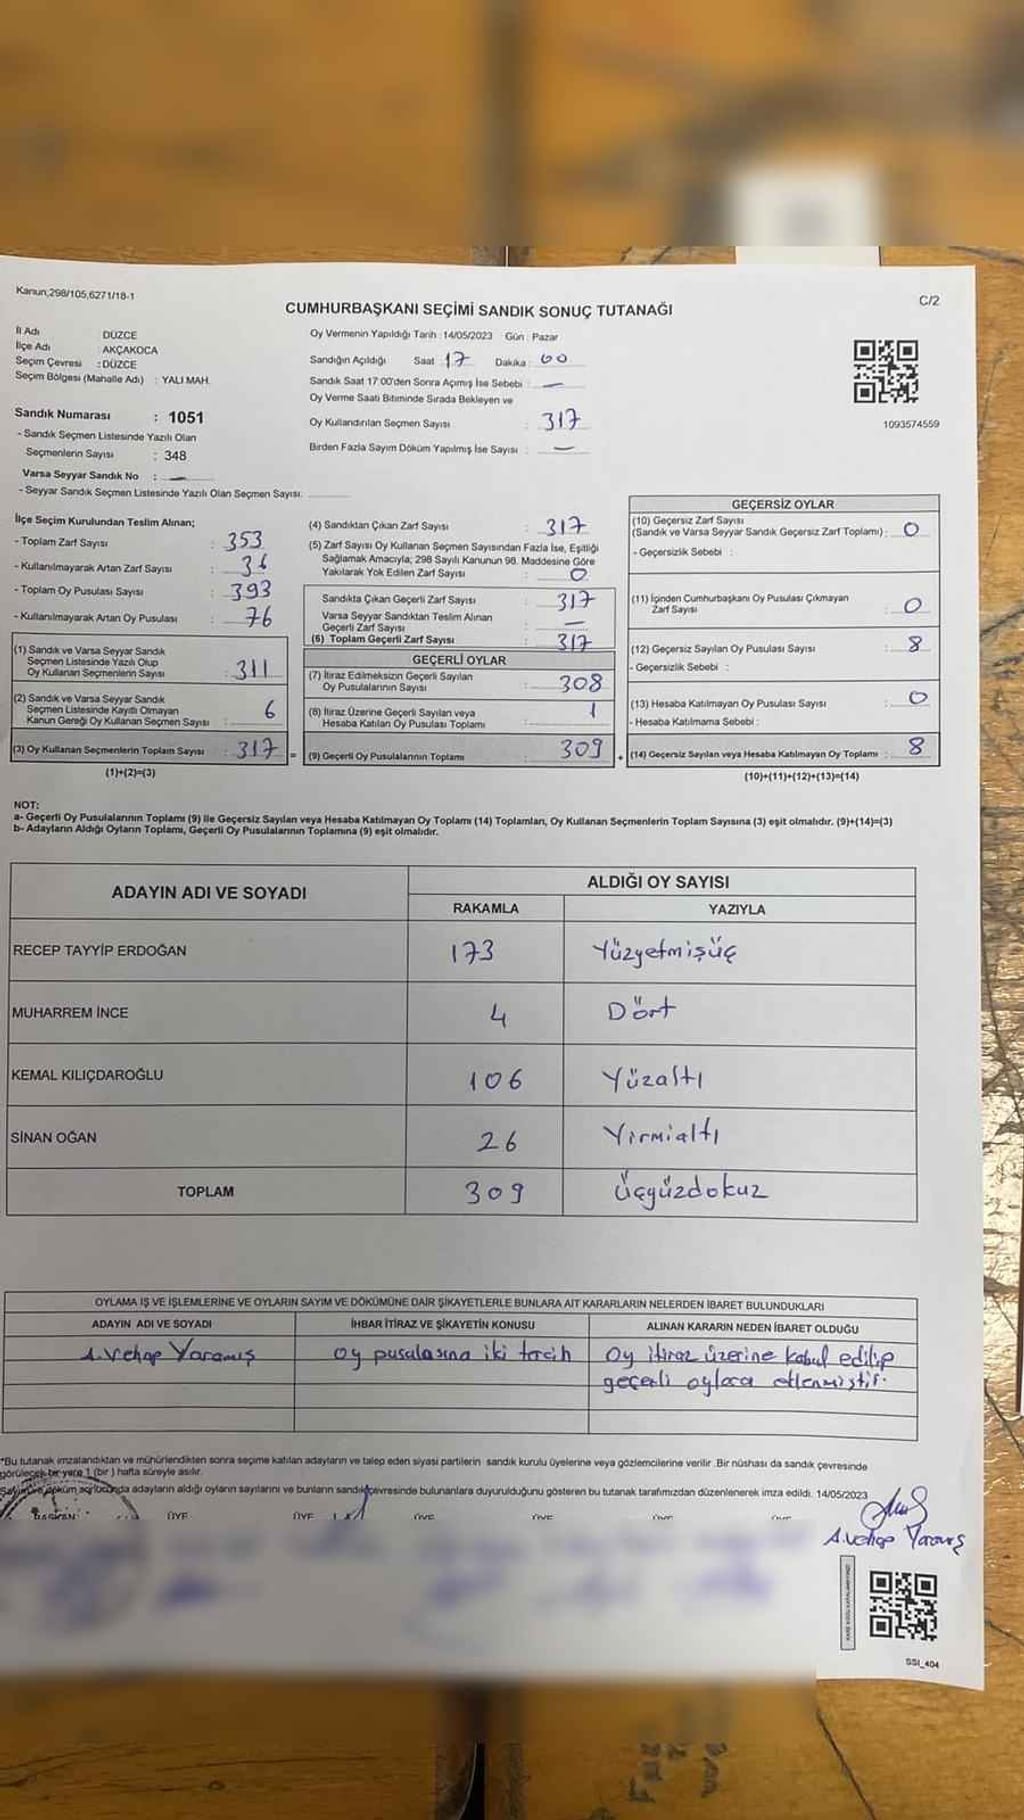 Kanun,298/105,6271/18-1
C/2
CUMHURBAŞKANI SEÇİMİ SANDIK SONUÇ TUTANAĞI
İl Adı DÜZCE
İlçe Adı AKÇAKOCA
Seçim Çevresi : DÜZCE
Seçim Bölgesi (Mahalle Adı) : YALI MAH.
Sandık Numarası : 1051
- Sandık Seçmen Listesinde Yazılı Olan
Seçmenlerin Sayısı : 348
Varsa Seyyar Sandık No : —
- Seyyar Sandık Seçmen Listesinde Yazılı Olan Seçmen Sayısı.
Oy Vermenin Yapıldığı Tarih : 14/05/2023 Gün : Pazar
Sandığın Açıldığı Saat 17 Dakika : 00
Sandık Saat 17:00'den Sonra Açımış İse Sebebi : —
Oy Verme Saati Bitiminde Sırada Bekleyen ve
Oy Kullandırılan Seçmen Sayısı : 317
Birden Fazla Sayım Döküm Yapılmış İse Sayısı : —
1093574559
İlçe Seçim Kurulundan Teslim Alınan;
- Toplam Zarf Sayısı : 353
- Kullanılmayarak Artan Zarf Sayısı : 36
- Toplam Oy Pusulası Sayısı : 393
- Kullanılmayarak Artan Oy Pusulası : 76
(1) Sandık ve Varsa Seyyar Sandık
Seçmen Listesinde Yazılı Olup
Oy Kullanan Seçmenlerin Sayısı : 311
(2) Sandık ve Varsa Seyyar Sandık
Seçmen Listesinde Kayıtlı Olmayan
Kanun Gereği Oy Kullanan Seçmen Sayısı : 6
(3) Oy Kullanan Seçmenlerin Toplam Sayısı : 317 =
(1)+(2)=(3)
(4) Sandıktan Çıkan Zarf Sayısı : 317
(5) Zarf Sayısı Oy Kullanan Seçmen Sayısından Fazla İse, Eşitliği
Sağlamak Amacıyla; 298 Sayılı Kanunun 98. Maddesine Göre
Yakılarak Yok Edilen Zarf Sayısı : 0
Sandıkta Çıkan Geçerli Zarf Sayısı : 317
Varsa Seyyar Sandıktan Teslim Alınan
Geçerli Zarf Sayısı : —
(6) Toplam Geçerli Zarf Sayısı : 317
GEÇERLİ OYLAR
(7) İtiraz Edilmeksizin Geçerli Sayılan
Oy Pusulalarının Sayısı : 308
(8) İtiraz Üzerine Geçerli Sayılan veya
Hesaba Katılan Oy Pusulası Toplamı : 1
(9) Geçerli Oy Pusulalarının Toplamı : 309 +
GEÇERSİZ OYLAR
(10) Geçersiz Zarf Sayısı
(Sandık ve Varsa Seyyar Sandık Geçersiz Zarf Toplamı) : 0
- Geçersizlik Sebebi :
(11) İçinden Cumhurbaşkanı Oy Pusulası Çıkmayan
Zarf Sayısı : 0
(12) Geçersiz Sayılan Oy Pusulası Sayısı : 8
- Geçersizlik Sebebi :
(13) Hesaba Katılmayan Oy Pusulası Sayısı : 0
- Hesaba Katılmama Sebebi :
(14) Geçersiz Sayılan veya Hesaba Katılmayan Oy Toplamı : 8
(10)+(11)+(12)+(13)=(14)
NOT:
a- Geçerli Oy Pusulalarının Toplamı (9) ile Geçersiz Sayılan veya Hesaba Katılmayan Oy Toplamı (14) Toplamları, Oy Kullanan Seçmenlerin Toplam Sayısına (3) eşit olmalıdır. (9)+(14)=(3)
b- Adayların Aldığı Oyların Toplamı, Geçerli Oy Pusulalarının Toplamına (9) eşit olmalıdır.
ADAYIN ADI VE SOYADI ALDIĞI OY SAYISI
RAKAMLA YAZIYLA
RECEP TAYYİP ERDOĞAN 173 Yüzyetmişüç
MUHARREM İNCE 4 Dört
KEMAL KILIÇDAROĞLU 106 Yüzaltı
SİNAN OĞAN 26 Yirmialtı
TOPLAM 309 Üçyüzdokuz
OYLAMA İŞ VE İŞLEMLERİNE VE OYLARIN SAYIM VE DÖKÜMÜNE DAİR ŞİKAYETLERLE BUNLARA AİT KARARLARIN NELERDEN İBARET BULUNDUKLARI
ADAYIN ADI VE SOYADI İHBAR İTİRAZ VE ŞİKAYETİN KONUSU ALINAN KARARIN NEDEN İBARET OLDUĞU
A.Vehap Yaramış oy pusulasına iki tercih oy itiraz üzerine kabul edilip
geçerli oylara eklenmiştir.
*Bu tutanak imzalandıktan ve mühürlendikten sonra seçime katılan adayların ve talep eden siyasi partilerin sandık kurulu üyelerine veya gözlemcilerine verilir. Bir nüshası da sandık çevresinde
görülecek bir yere 1 (bir ) hafta süreyle asılır.
Sayım ve döküm sonucunda adayların aldığı oyların sayılarını ve bunların sandık çevresinde bulunanlara duyurulduğunu gösteren bu tutanak tarafımızdan düzenlenerek imza edildi. 14/05/2023
BAŞKAN ÜYE ÜYE ÜYE ÜYE ÜYE ÜYE
A.Vehap Yaramış
SSI_404